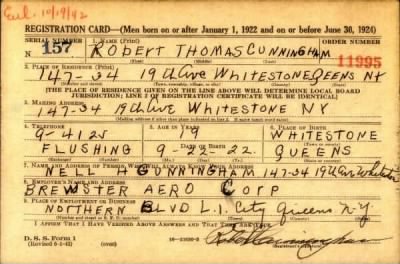 Enl. 10/19/42
REGISTRATION CARD—(Men born on or after January 1, 1922 and on or before June 30, 1924)
SERIAL NUMBER 1. NAME (Print) ORDER NUMBER
N 157 ROBERT THOMAS CUNNINGHAM 11995
(First) (Middle) (Last)
2. PLACE OF RESIDENCE (Print)
147-34 19th Ave WHITESTONE QEENS NY
[THE PLACE OF RESIDENCE GIVEN ON THE LINE ABOVE WILL DETERMINE LOCAL BOARD
JURISDICTION; LINE 2 OF REGISTRATION CERTIFICATE WILL BE IDENTICAL]
3. MAILING ADDRESS
147-34 19th Ave WHITESTONE NY
4. TELEPHONE 5. AGE IN YEARS 6. PLACE OF BIRTH
9-4125 19 WHITESTONE
FLUSHING 9-22-22 QUEENS
7. NAME AND ADDRESS OF PERSON WHO WILL ALWAYS KNOW YOUR ADDRESS
NELL H CUNNINGHAM 147-34 19th Ave Whitestone
8. EMPLOYER'S NAME AND ADDRESS
BREWSTER AERO CORP
9. PLACE OF EMPLOYMENT OR BUSINESS
NORTHERN BLVD L.I. City Queens N.Y.
I AFFIRM THAT I HAVE VERIFIED ABOVE ANSWERS AND THAT THEY ARE TRUE.
D. S. S. Form 1
(Revised 6-9-42)